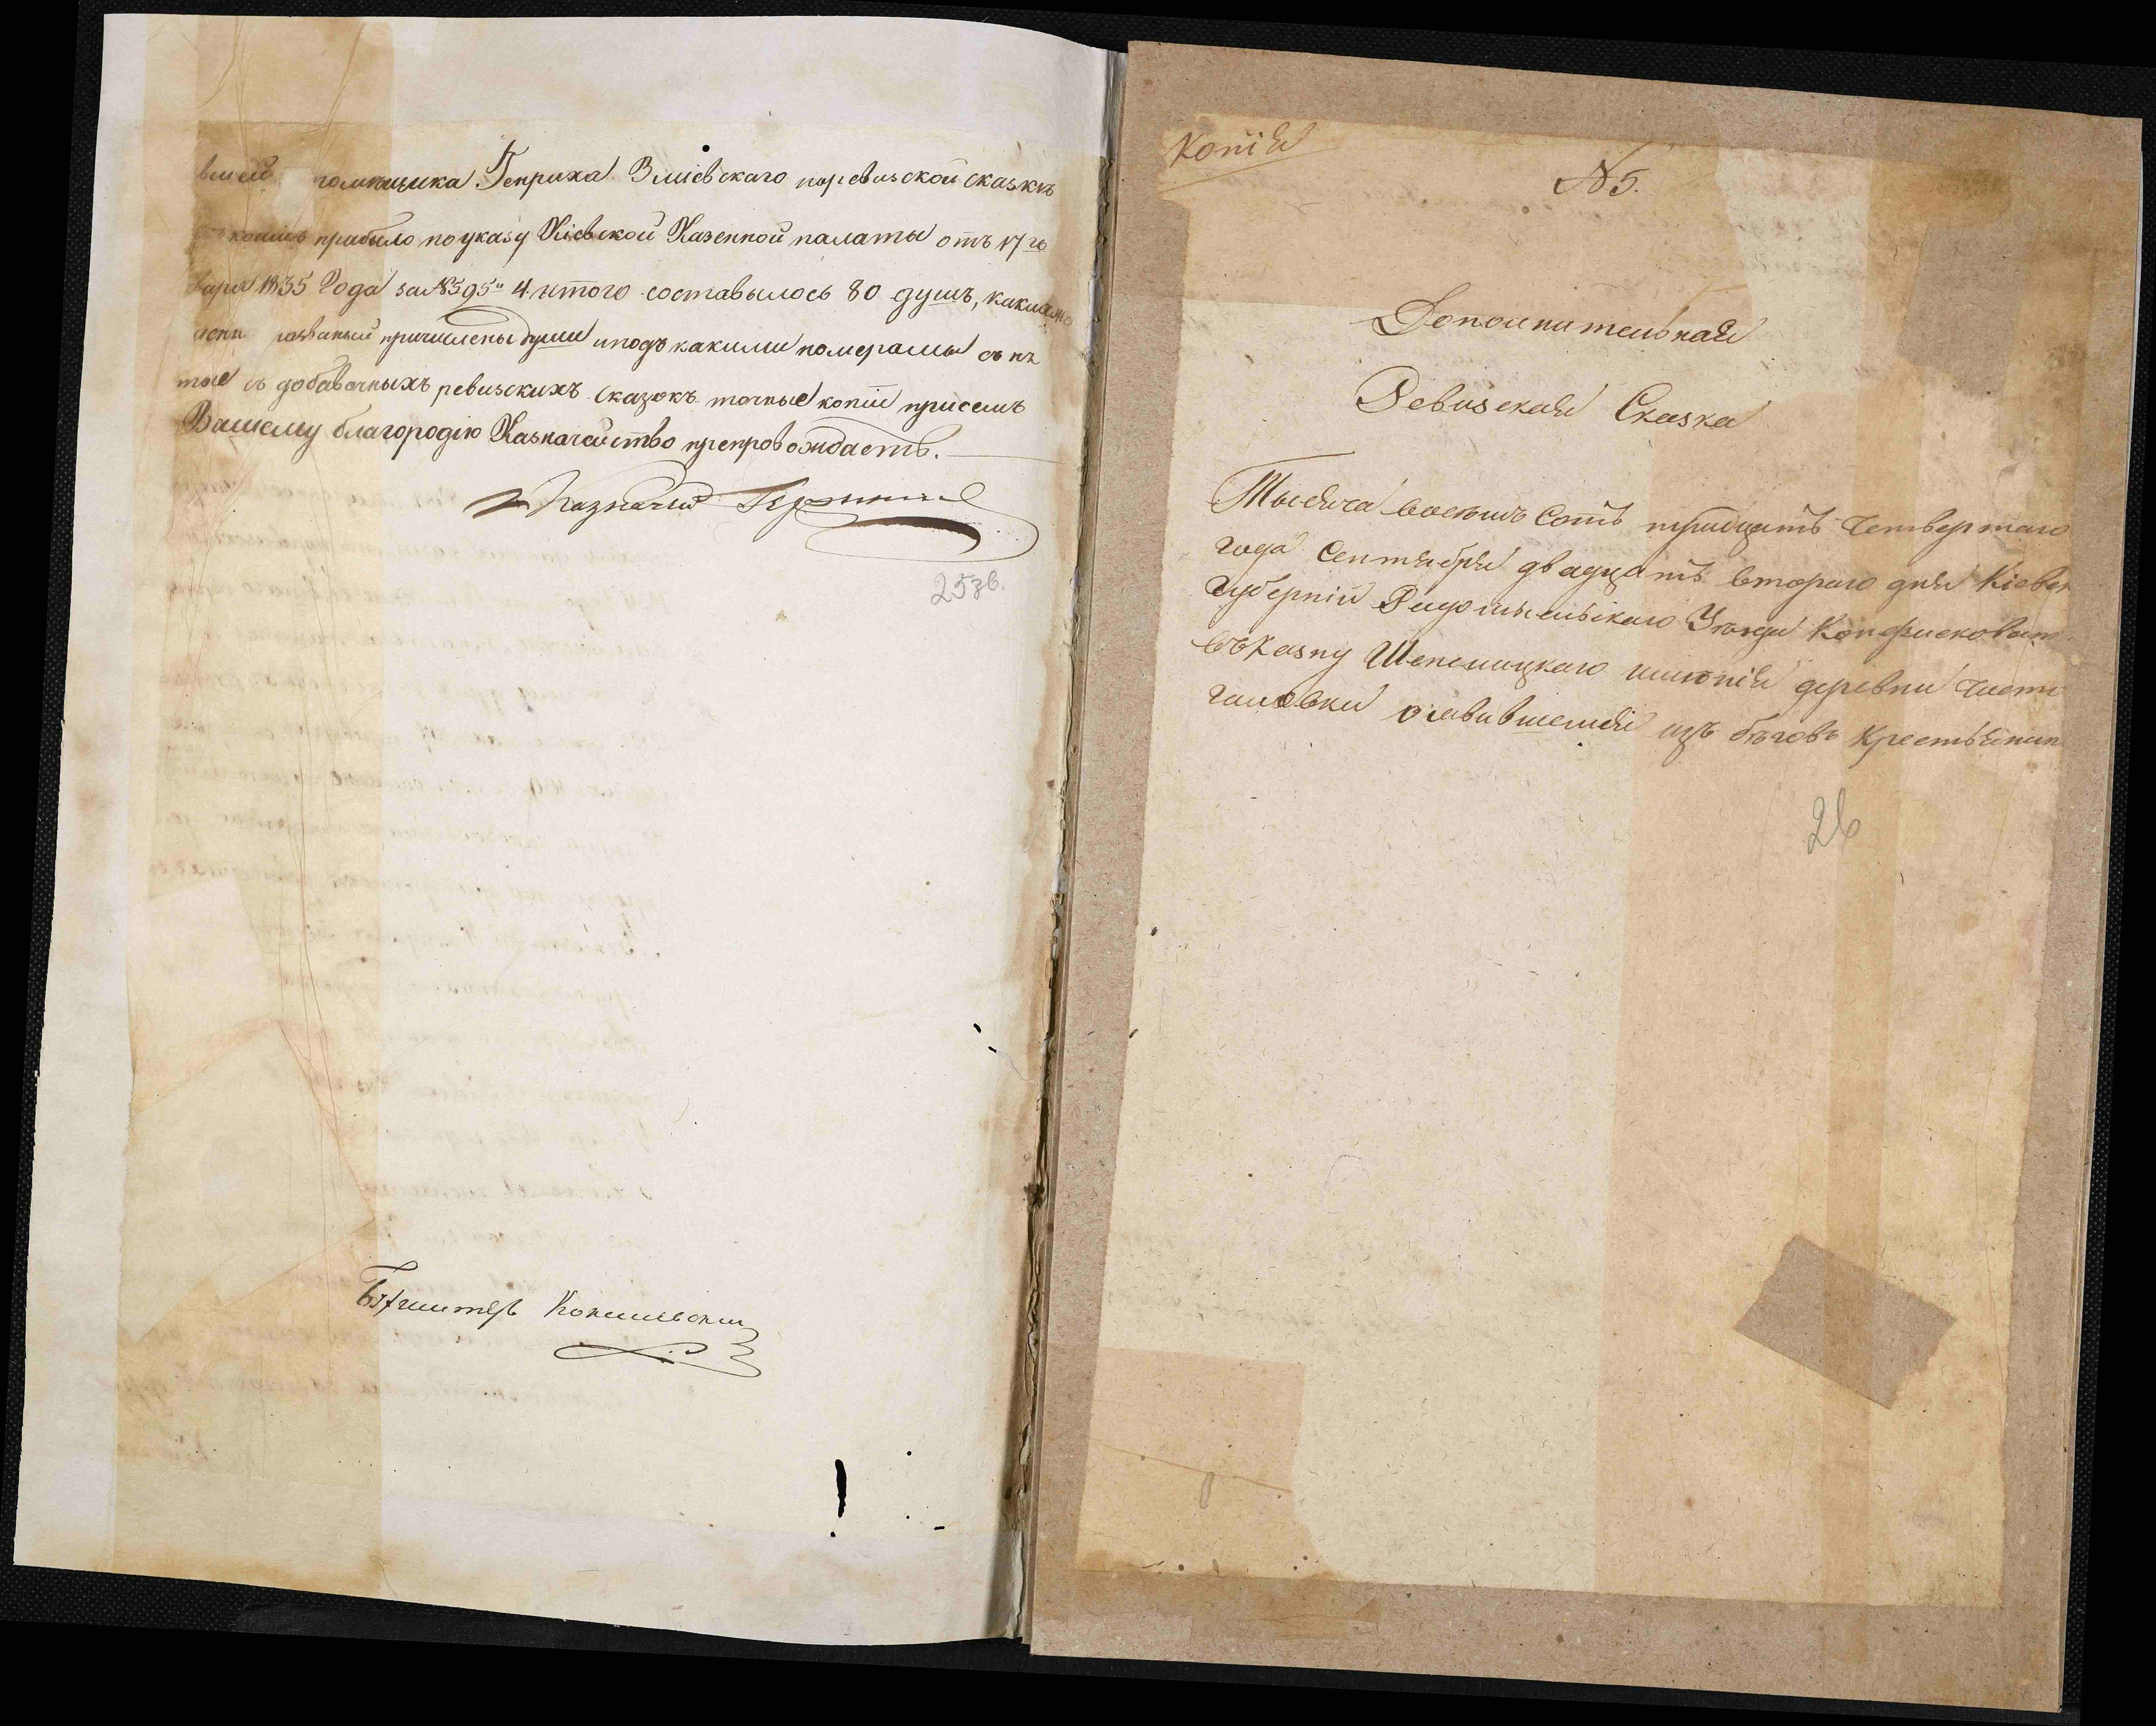 помѣщика Генриха Змiевскаго поревизской сказкѣ
прибыло по указу Кіевской Казенной палаты отъ 17го
варя 1835 Года за №595м 4. итого составылось 80 душъ,
причислены души и подъ какими номерамы
тые съ добавочныхъ ревизскихъ сказокъ точные копіи присемъ
Вашему благородію Казначейство препровождаетъ.
Казначей
25зв.
Бухгалтеръ
Копія
№ 5.
Дополнительная
Ревизская Сказка
Тысяча восемь Сотъ тридцать Четвертаго
года Сентября двадцать втораго дня Кіевск
Губерніи Радомысльскаго Уѣзда Конфискован
въ Казну Шепелицкаго имѣнія деревни Чисто
галовки о явившемся изъ бѣговъ Крестьянин
26